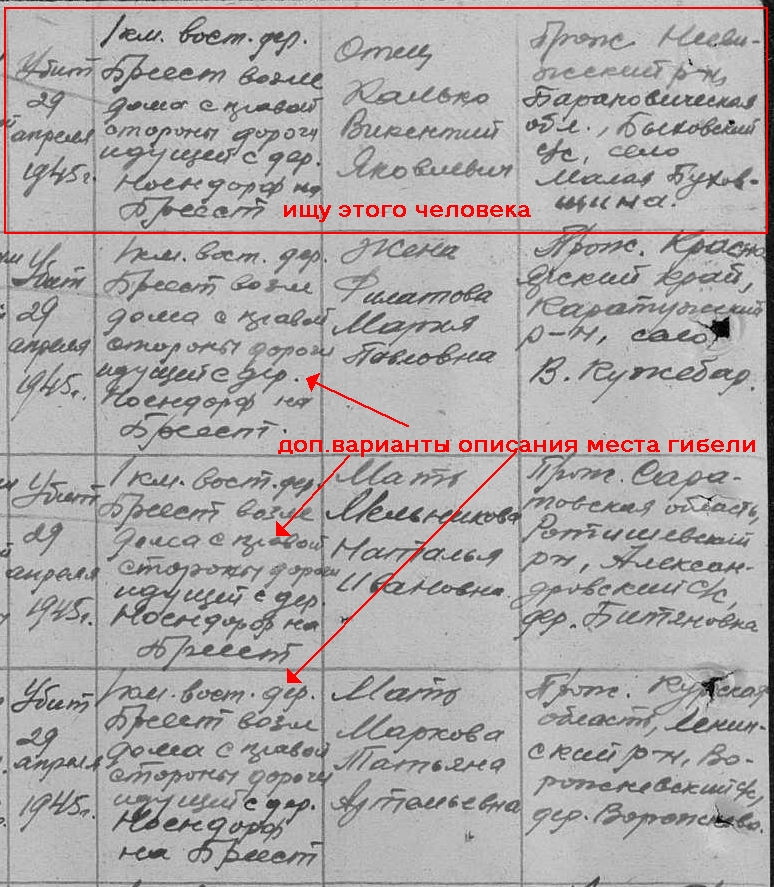 Убит
29
апреля
1945г.
1 км. вост. дер.
Бреест возле
дома с правой
стороны дороги
идущей с дер.
Носендорф на
Бреест
Отец
Калько
Викентий
Яковлевич
Прож. Несви-
жский р-н,
Барановическая
обл., Быховский
с/с, село
Малая Бухов-
щина.
ищу этого человека
Убит
29
апреля
1945г.
1 км. вост. дер.
Бреест возле
дома с правой
стороны дороги
идущей с дер.
Носендорф на
Бреест.
Жена
Филатова
Мария
Павловна
Прож. Красно
ярский край,
Каратузский
р-н, село
В. Кужебар.
доп.варианты описания места гибели
Убит
29
апреля
1945г.
1 км. вост. дер.
Бреест возле
дома с правой
стороны дороги
идущей с дер.
Носендорф на
Бреест
Мать
Мельникова
Наталья
Ивановна.
Прож. Сара-
товская область,
Ртищевский
р-н, Алексан-
дровский с/с,
дер. Битяновка
Убит
29
апреля
1945г.
1 км. вост. дер.
Бреест возле
дома с правой
стороны дороги
идущей с дер.
Носендорф
на Бреест
Мать
Маркова
Татьяна
Артемьевна
Прож. Курская
область, Ленин-
ский р-н, Во-
рожневский с/с,
дер. Ворожнево.